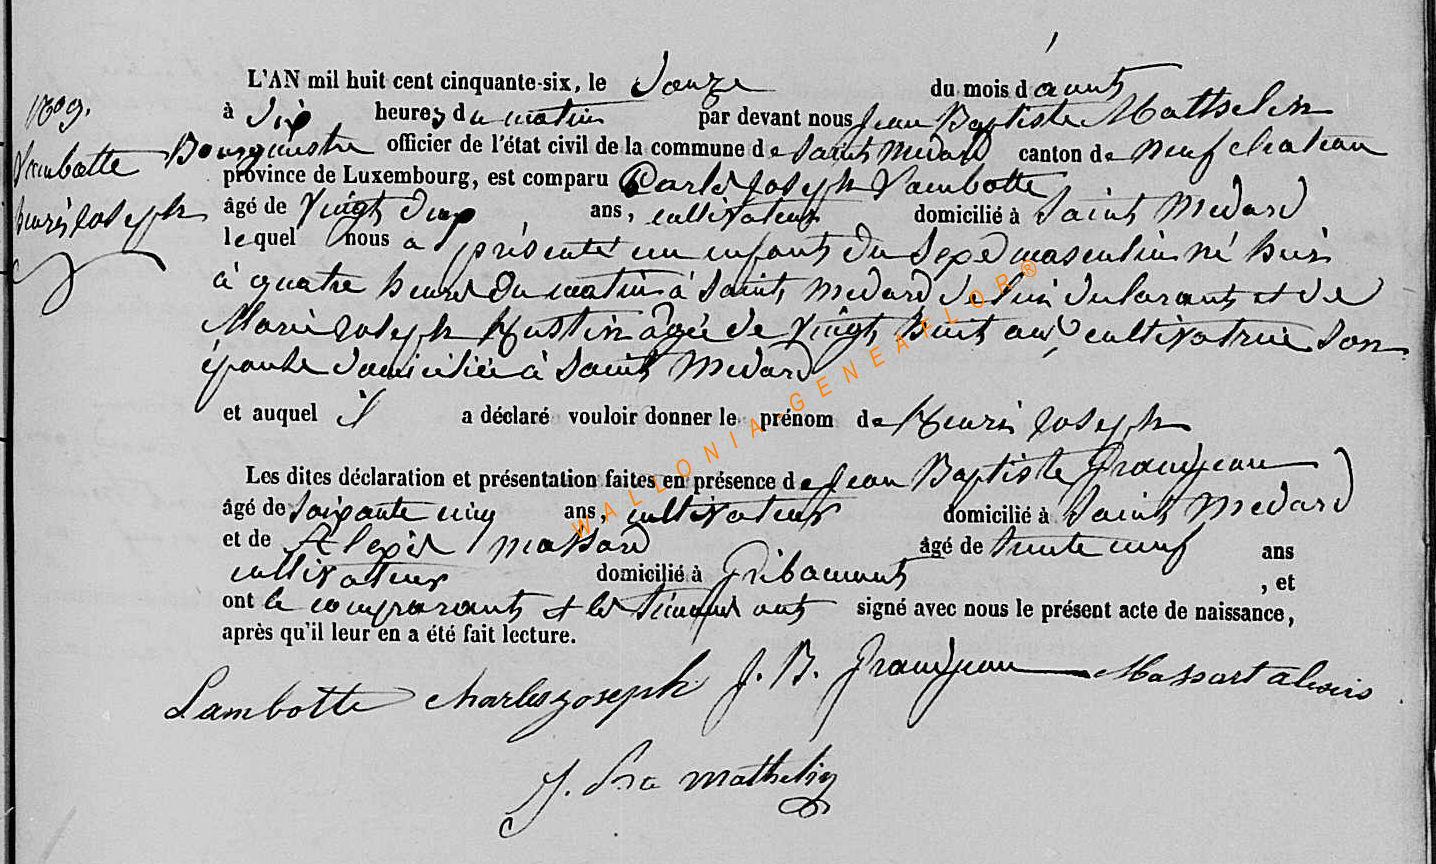 L'AN mil huit cent cinquante-six, le douze du mois d'aout
à dix heures du matin par devant nous Jean Baptiste Mathelin
Bourgmestre officier de l'état civil de la commune de Saint Medard canton de Neufchateau
province de Luxembourg, est comparu Carle Joseph Lambotte
âgé de vingt cultivateur ans, domicilié à Saint Medard
lequel nous a présenté un enfant du sexe masculin né hier
à quatre heures du matin à Saint Medard de lui declarant et de
Marie Joseph Hustin agée de vingt huit ans cultivatrice son
épouse domiciliée à Saint Medard
et auquel il a déclaré vouloir donner le prénom de Henri Joseph
Les dites déclaration et présentation faites en présence de Jean Baptiste Grandjean
âgé de soixante cinq ans, cultivateur domicilié à Saint Medard
et de Alexis Massard âgé de trente neuf ans
cultivateur domicilié à Gribaumont , et
ont le comparant et les témoins ont signé avec nous le présent acte de naissance,
après qu'il leur en a été fait lecture.
Lambotte
henri Joseph
Lambotte charles joseph J. B. Grandjean Massart alexis
J. Bte Mathelin
WALLONIA-GENEAFLOR®